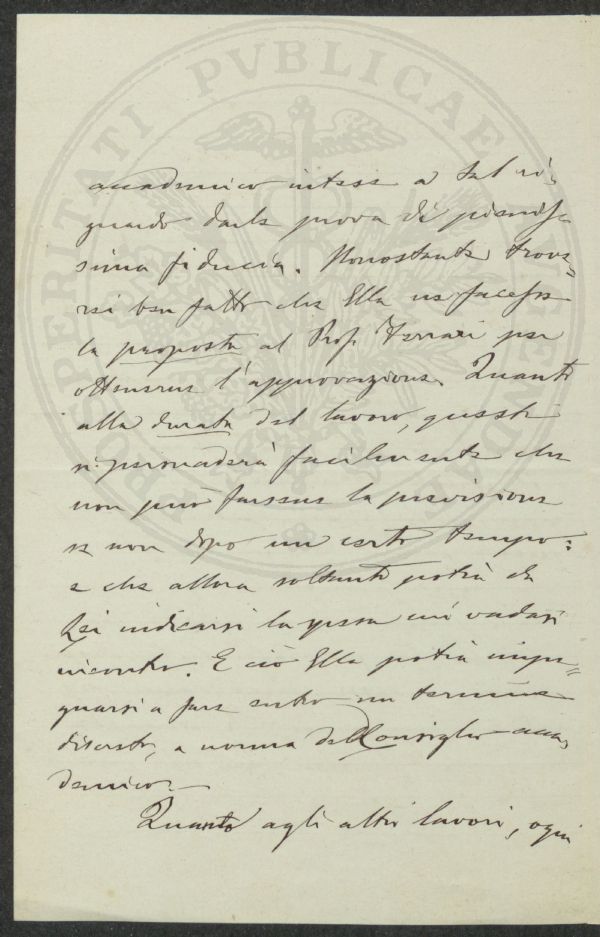 PROSPERITATI PVBLICAE AVGENDAE
accademico intese a tal ri-
guardo darle prova di pienis-
sima fiducia. Nonostante trove-
rei ben fatto che Ella ne facesse
la proposta al Prof. Ferrari per
ottenerne l'approvazione. Quanto
alla durata del lavoro, questi
si persuaderà facilmente che
non può farsene la previsione
se non dopo un certo tempo:
e che allora soltanto potrà da
Lei indicarsi la spesa cui vadasi
incontro. E ciò Ella potrà impe=
gnarsi a fare entro un termine
discreto, a norma del Consiglio acca-
demico.
Quanto agli altri lavori, ogni